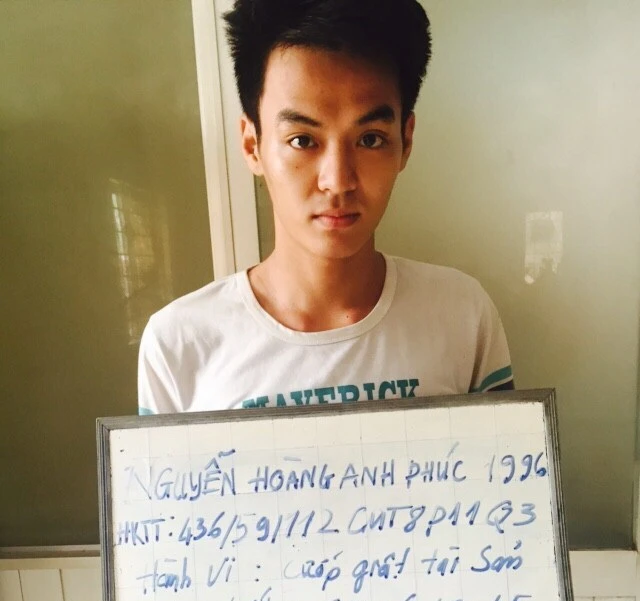 MAVERICK
NGUYỄN HOÀNG ANH PHÚC 1996
HKTT: 436/59/112 CMT8 P11 Q3
Hành Vi : Cướp giật tài Sản